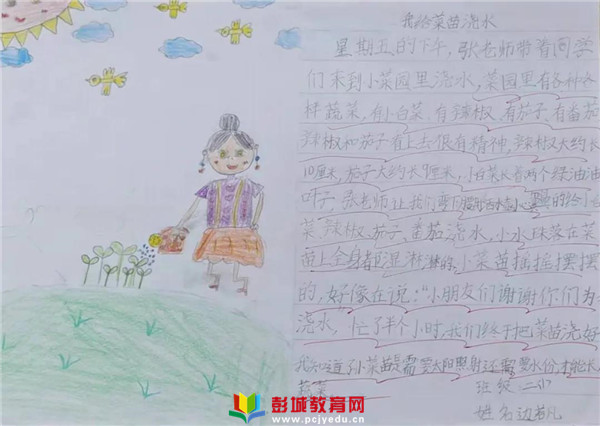 我给菜苗浇水
星期五的下午,张老师带着同学
们来到小菜园里浇水,菜园里有各种各
样蔬菜,有小白菜、有辣椒、有茄子、有番茄
辣椒和茄子看上去很有精神,辣椒大约长
10厘米,茄子大约长9厘米,小白菜长着两个绿油油
叶子,张老师让我们弯下腰小心翼翼的给小白
菜、辣椒、茄子、番茄浇水,小水珠落在菜
苗上全身都湿淋淋的,小菜苗摇摇摆摆
的,好像在说:“小朋友们谢谢你们为
浇水,”忙了半个小时,我们终于把菜苗浇好
我知道了小菜苗是需要太阳照射还需要水份,才能长
蔬菜。
班级 二(1)
姓名边若凡
彭城教育网
www.pcjyedu.cn